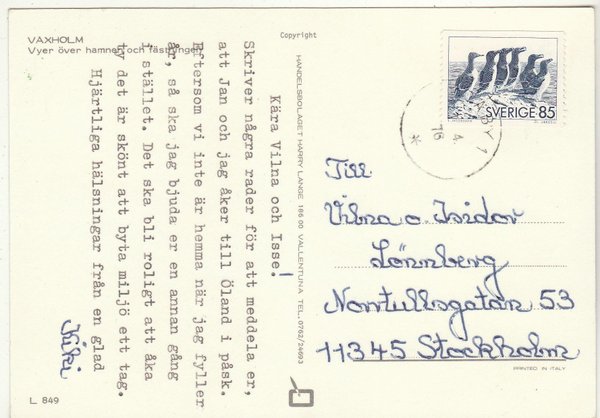 VAXHOLM
Vyer över hamnen och fästningen
Copyright
Kära Vilna och Isse!
Skriver några rader för att meddela er,
att Jan och jag åker till Öland i påsk.
Eftersom vi inte är hemma när jag fyller
år, så ska jag bjuda er en annan gång
i stället. Det ska bli roligt att åka
ty det är skönt att byta miljö ett tag.
Hjärtliga hälsningar från en glad
Kiki
L 849
HANDELSBOLAGET HARRY LANGE 186 00 VALLENTUNA TEL. 0762/24693
SVERIGE 85
BY 1
4
76
Till
Vilna o. Isidor
Lönnberg
Norrtullsgatan 53
11345 Stockholm
PRINTED IN ITALY